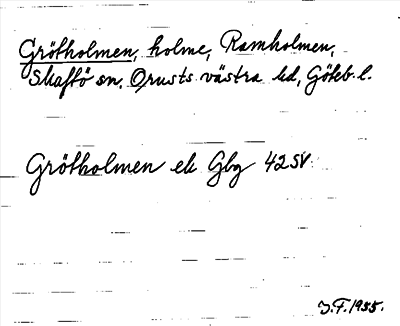 Grötholmen, holme, Ramholmen,
Skaftö sn, Orusts västra hd, Göteb. l.
Grötholmen ek Gbg 42 SV.
J.F. 1955.